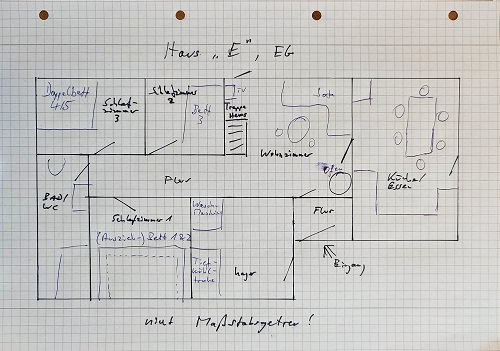 Haus „E“, EG
Doppelbett
4+5
Schlaf-
zimmer
3
Schlafzimmer
2
Bett
3
TV
Treppe
Wohnzimmer
Sofa
Ofen
Küche/
Essen
Flur
BAD/
WC
Schlafzimmer 1
(Auszieh-) Bett 1&2
Wasch-
Maschine
Tief-
kühl-
truhe
Lager
Flur
Eingang
nicht Maßstabgetreu!